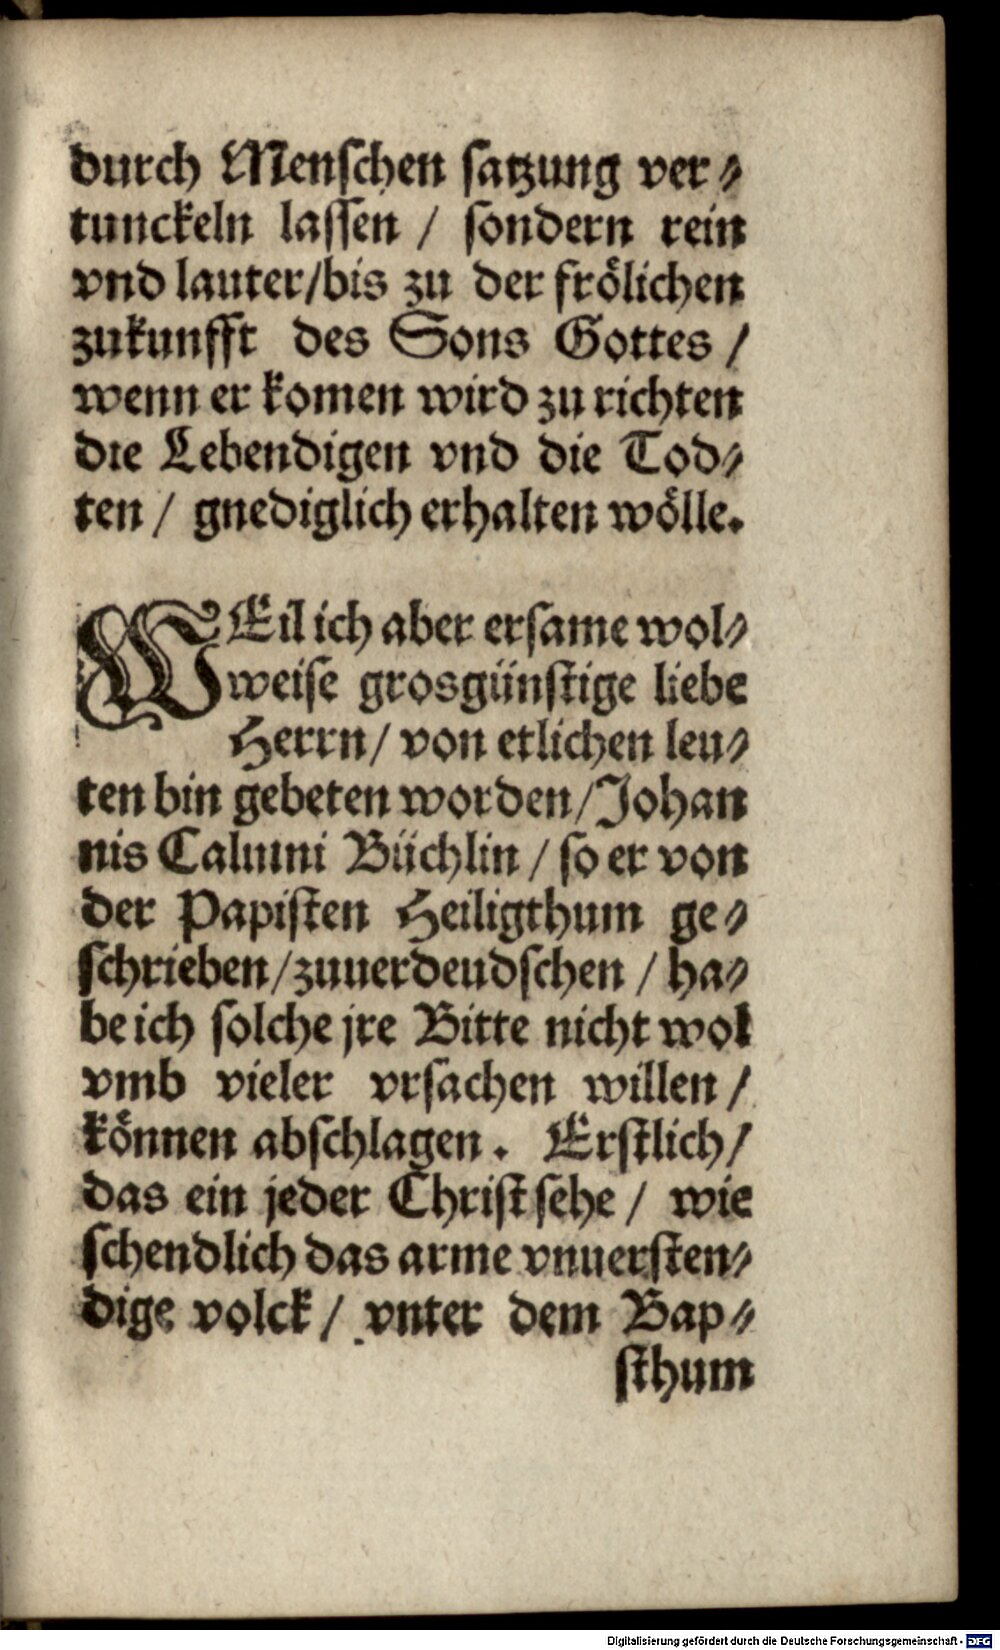 durch Menschen satzung ver⸗
tunckeln lassen / sondern rein
vnd lauter/bis zu der frölichen
zukunfft des Sons Gottes /
wenn er komen wird zu richten
die Lebendigen vnd die Tod⸗
ten / gnediglich erhalten wölle.
WEil ich aber ersame wol⸗
weise grosgünstige liebe
Herrn/ von etlichen leu⸗
ten bin gebeten worden/Johan
nis Caluini Büchlin / so er von
der Papisten Heiligthum ge⸗
schrieben/zuuerdeudschen / ha⸗
be ich solche jre Bitte nicht wol
vmb vieler vrsachen willen /
können abschlagen. Erstlich/
das ein jeder Christ sehe / wie
schendlich das arme vnuersten⸗
dige volck / vnter dem Bap⸗
sthum
Digitalisierung gefördert durch die Deutsche Forschungsgemeinschaft - DFG